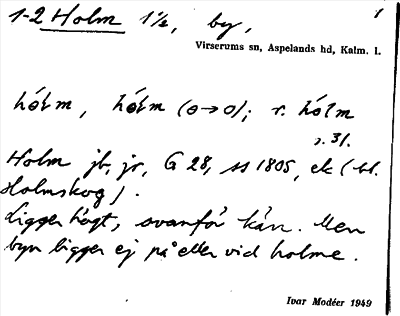 1-2 Holm 1 1/2, by,
Virserums sn, Aspelands hd, Kalm. l.
hólm, hólm (o→o); r. hólm
s. 31.
Holm jb, jr, G 28, ss 1805, ek (bl.
Holmskog).
Ligger högt, ovanför kärr. Men
byn ligger ej på eller vid holme.
Ivar Modéer 1949